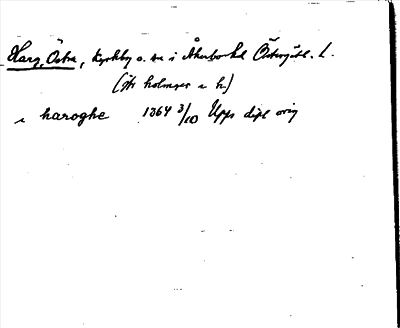 Harg, Östra, kyrkby o. sn i Åkerbo hd Östergötl. L.
(jfr holmger i h.)
i haroghe 1364 3/10 Upps dipl orig